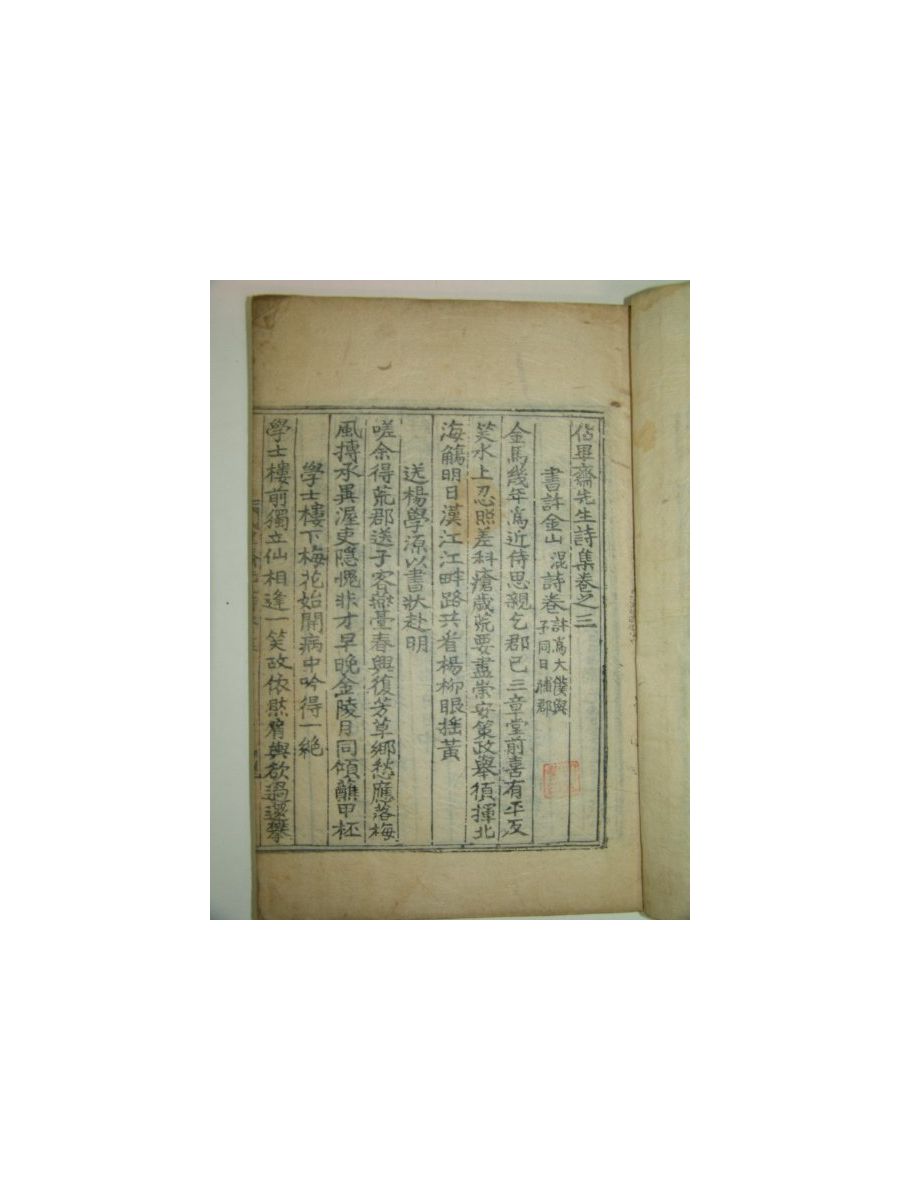 佔畢齋先生詩集卷之三
書許金山 混 詩卷 許爲大僕與
子同日補郡
金馬幾年爲近侍思親乞郡已三章堂前喜有平反
笑水上忍照差科瘡歲荒要盡崇安策政擧須揮北
海觴明日漢江江畔路共看楊柳眼搖黃
送楊學源以書狀赴明
嗟余得荒郡送子客燕臺春興復芳草鄉愁應落梅
風摶承異渥吏隱愧非才早晚金陵月同傾蘸甲杯
學士樓下梅花始開病中吟得一絶
學士樓前獨立仙相逢一笑故依然肩輿欲過還攀